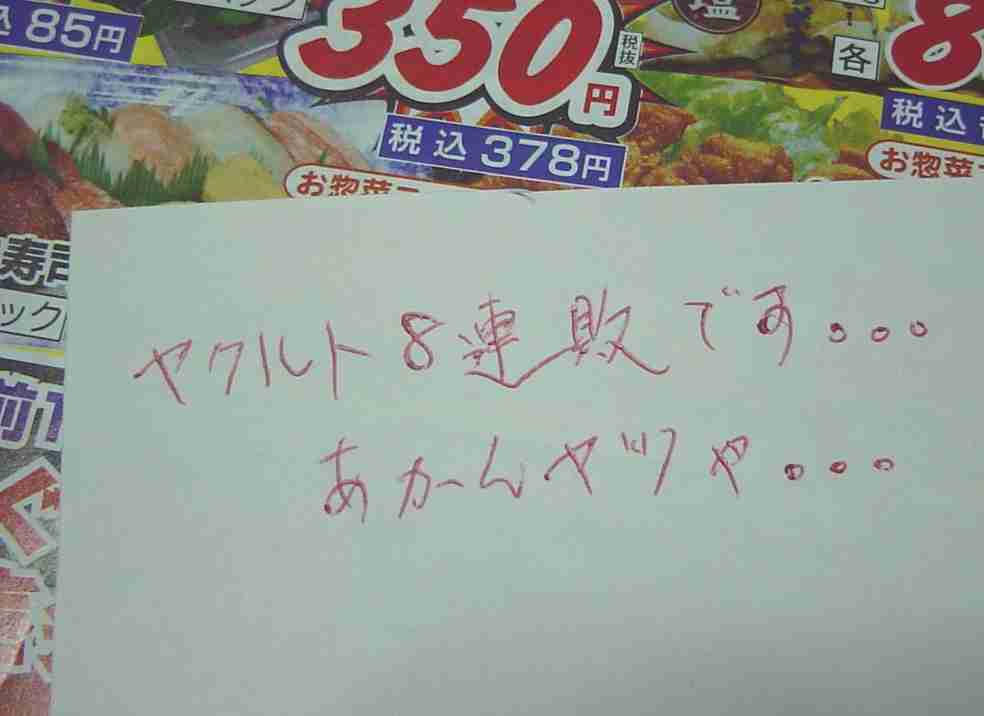 85円
350円
税抜
税込378円
塩
各
8
税込
お惣菜
お惣菜
寿司
ック
前
ヤクルト8連敗です...
あかんヤツや...